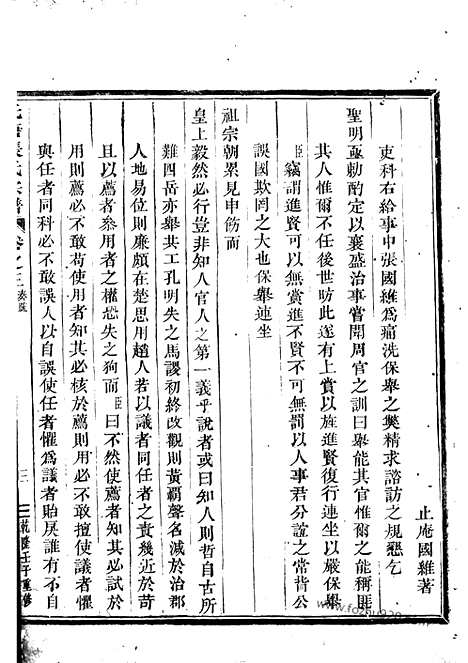 止庵國維著
吏科右給事中張國維爲痛洗保舉之獘精求諮訪之規懇乞
聖明亟勅酌定以襄盛治事嘗聞周官之訓曰舉能其官惟爾之能稱匪
其人惟爾不任後世昉此遂有上賞以旌進賢復行連坐以嚴保舉
臣竊謂進賢可以無賞進不賢不可無罰以人事君分誼之常背公
誤國欺罔之大也保舉連坐
祖宗朝累見申飭而
皇上毅然必行豈非知人官人之第一義乎說者或曰知人則哲自古所
難四岳亦舉共工孔明失之馬謖初終改觀則黃霸聲名減於治郡
人地易位則廉頗在楚思用趙人若以議者同任者之責幾近於苛
且以薦者參用者之權恐失之狥而臣曰不然使薦者知其必試於
用則薦必不敢苟使用者知其必核於薦則用必不敢擅使議者懼
與任者同科必不敢誤人以自誤使任者懼爲議者貽戾誰有不自
張氏宗譜
卷之三
奏疏
三
乾隆壬子重修